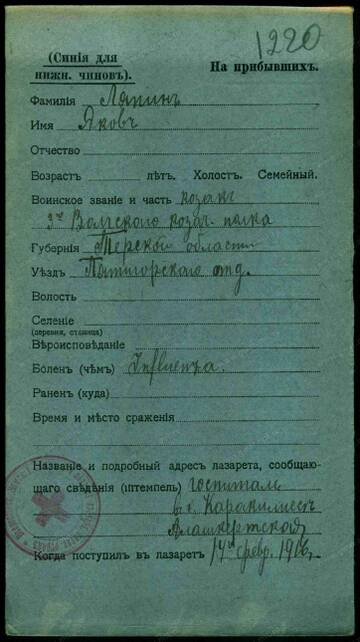 1220
(Синія для
нижн. чиновъ).
На прибывшихъ.
Фамилія Лапинъ
Имя Яковъ
Отчество
Возрастъ лѣтъ. Холостъ. Семейный.
Воинское званіе и часть козакъ
3го Волгского козач. полка
Губернія Терской области
Уѣздъ Пятигорскаго отд.
Волость
Селеніе
(деревня, станица)
Вѣроисповѣданіе
Боленъ (чѣмъ) Influenza.
Раненъ (куда)
Время и мѣсто сраженія
Названіе и подробный адресъ лазарета, сообщаю-
щаго свѣдѣнія (штемпель) госпиталь
в с. Каракилиссѣ
Алашкертской
Когда поступилъ въ лазаретъ 17го февр. 1916 г.